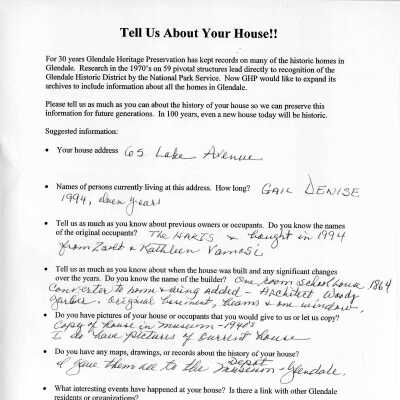 Tell Us About Your House!!
For 30 years Glendale Heritage Preservation has kept records on many of the historic homes in
Glendale. Research in the 1970's on 59 pivotal structures lead directly to recognition of the
Glendale Historic District by the National Park Service. Now GHP would like to expand its
archives to include information about all the homes in Glendale.
Please tell us as much as you can about the history of your house so we can preserve this
information for future generations. In 100 years, even a new house today will be historic.
Suggested information:
• Your house address 65 Lake Avenue
• Names of persons currently living at this address. How long? GAIL DENISE
1994, years
• Tell us as much as you know about previous owners or occupants. Do you know the names
of the original occupants? The bought in 1994
from & Kathleen Vamosi
• Tell us as much as you know about when the house was built and any significant changes
over the years. Do you know the name of the builder? One room school house 1864
to home & wing added - Architect, Woody
Garber. Original basement, beams & one window.
• Do you have pictures of your house or occupants that you would give to us or let us copy?
Copy of house in museum - 1940's
I do have pictures of current house
• Do you have any maps, drawings, or records about the history of your house?
I gave them all to the Depot museum - Glendale.
• What interesting events have happened at your house? Is there a link with other Glendale
residents or organizations?